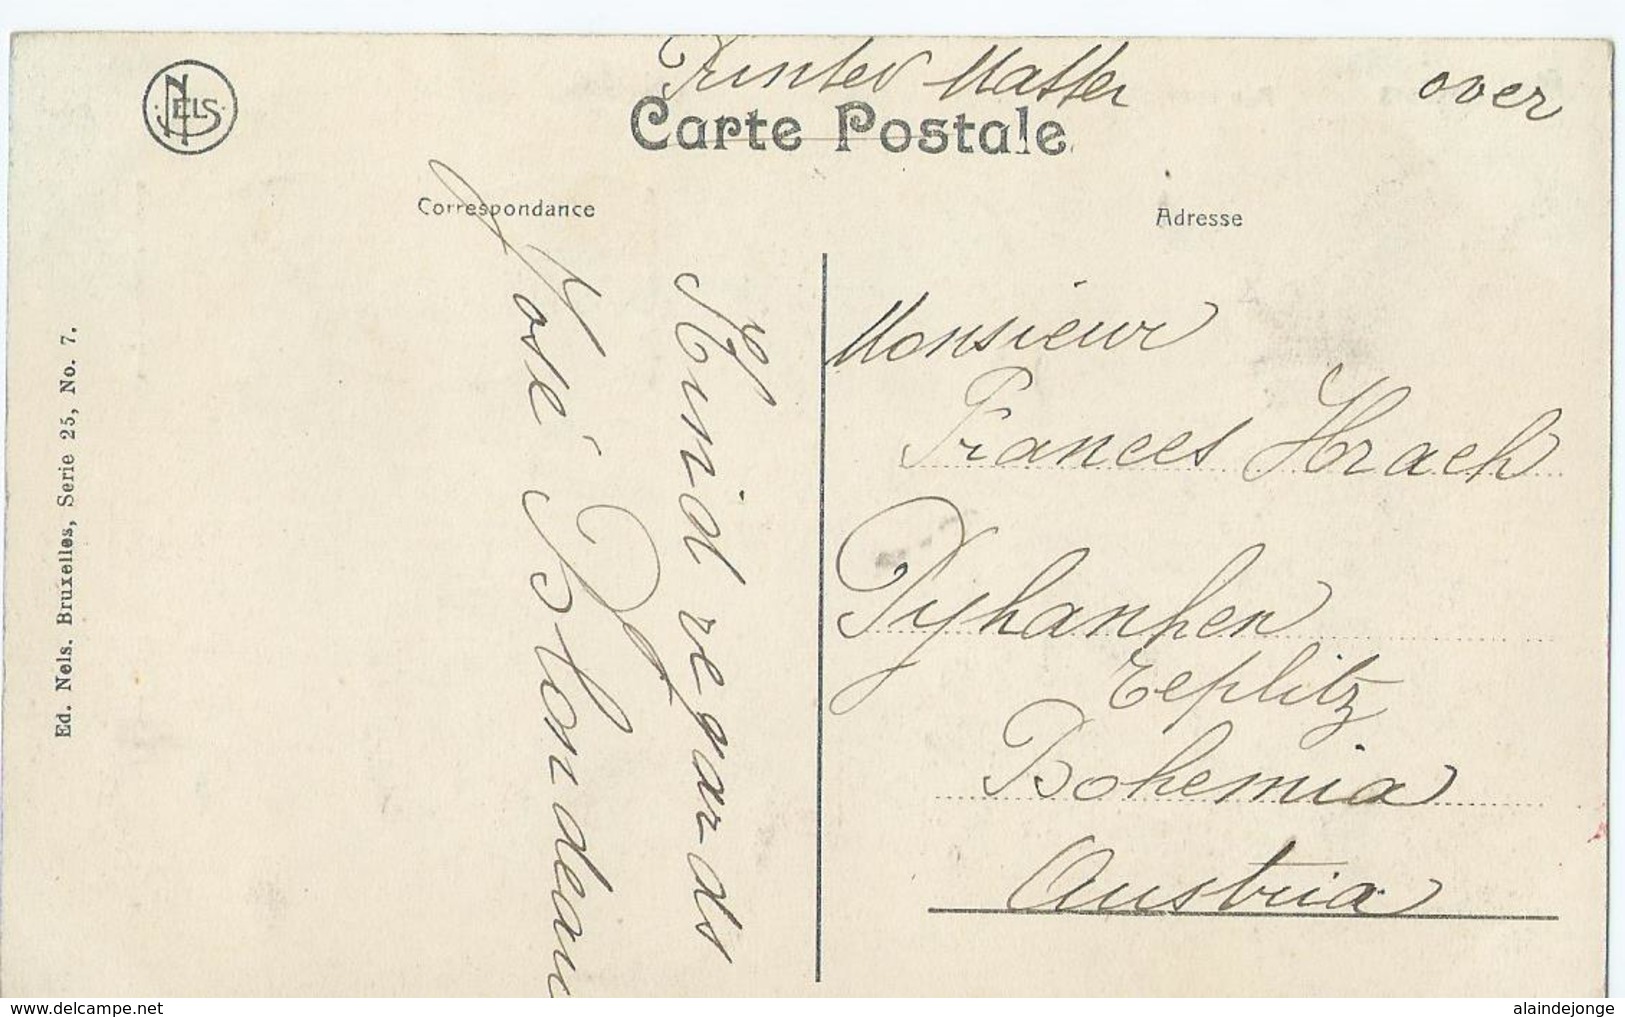 Printed Matter over
NELS
Carte Postale
Correspondance
Adresse
Ed. Nels. Bruxelles, Serie 25, No. 7.
Kind regards
José Blondeau
Monsieur
Frances Hrach
Pyhanken
Teplitz
Bohemia
Austria
www.delcampe.net
alaindejonge